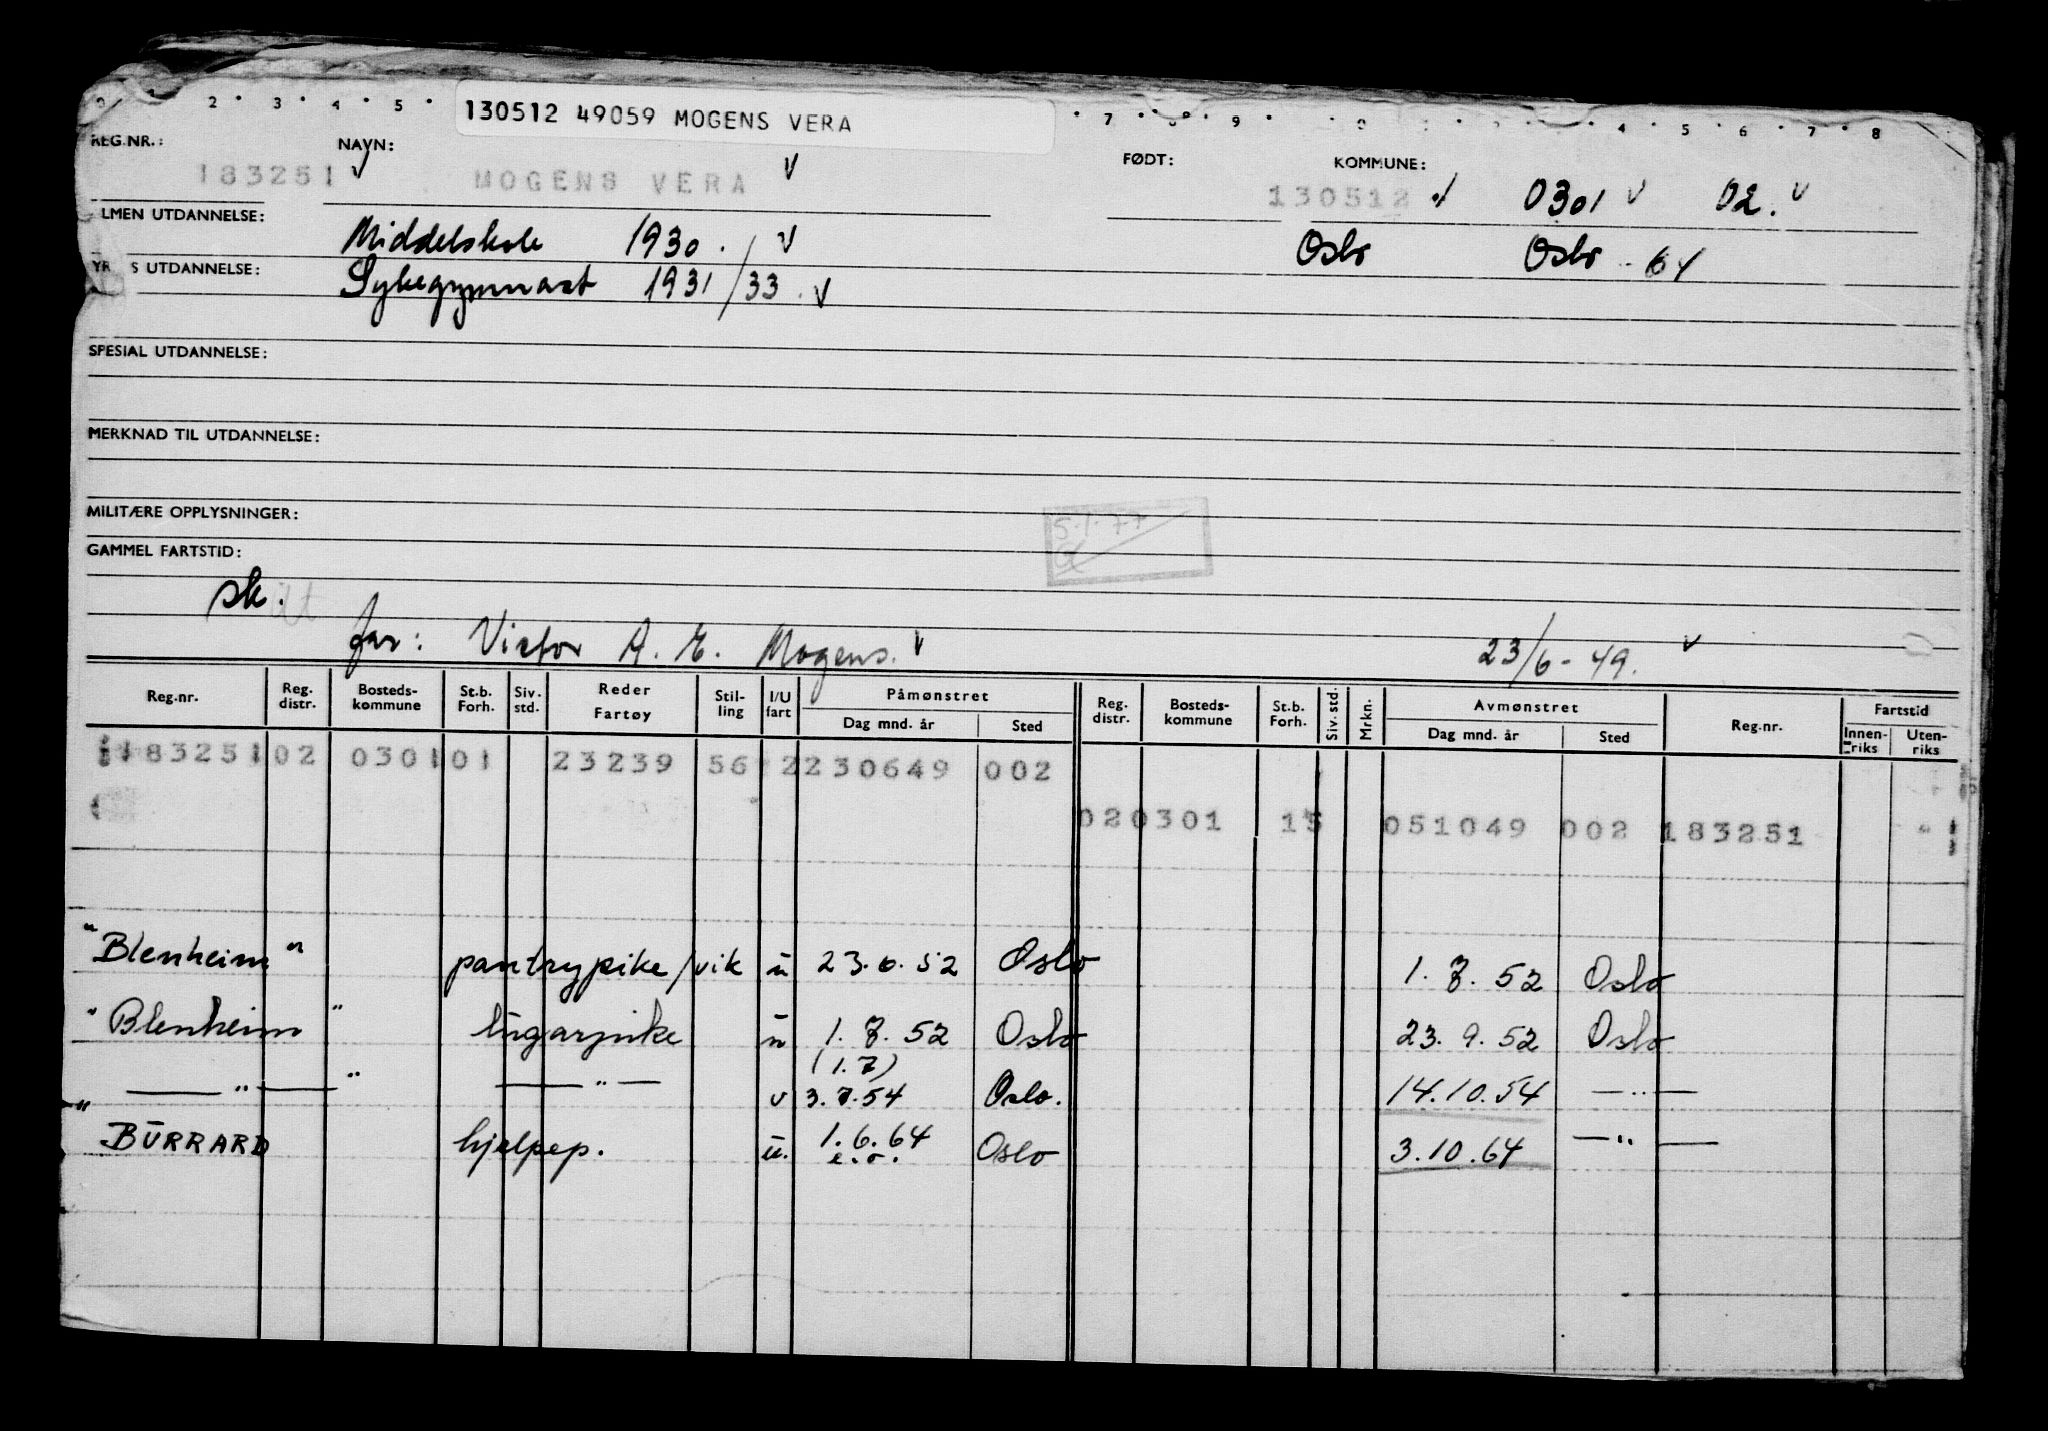 2 • 3 • 4 • 5 •
130512 49059 MOGENS VERA
• 7 • 8 • 9 • 4 • 5 • 6 • 7 • 8
REG.NR.: NAVN: FØDT: KOMMUNE:
183251 √ MOGENS VERA √ 130512 √ 0301 √ 02. √
LMEN UTDANNELSE: Middelskole 1930. √ Oslo Oslo - 64
S UTDANNELSE: Sykegymnast 1931/33. √
SPESIAL UTDANNELSE:
MERKNAD TIL UTDANNELSE:
MILITÆRE OPPLYSNINGER:
5.1.77
GAMMEL FARTSTID:
sk.
far: Victor A. E. Mogens. √ 23/6-49. √
Reg.nr. Reg. distr. Bosteds-kommune St.b. Forh. Siv. std. Reder Fartøy Stil-ling I/U fart Påmønstret Dag mnd. år Sted Reg. distr. Bosteds-kommune St.b. Forh. Siv. std. Mrkn. Avmønstret Dag mnd. år Sted Reg.nr. Fartstid Innen-riks Uten-riks
183251 02 0301 01 23239 56 2 230649 002
02 0301 15 051049 002 183251
"Blenheim" pantrypike/vik u 23.6.52 Oslo 1.7.52 Oslo
"Blenheim" lugarpike u 1.7.52 Oslo 23.9.52 Oslo
(1.7)
— " — " — " — u 3.7.54 Oslo. 14.10.54 — " —
"BURRARD hjelpep. u. 1.6.64 Oslo 3.10.64 — " —
e.o.